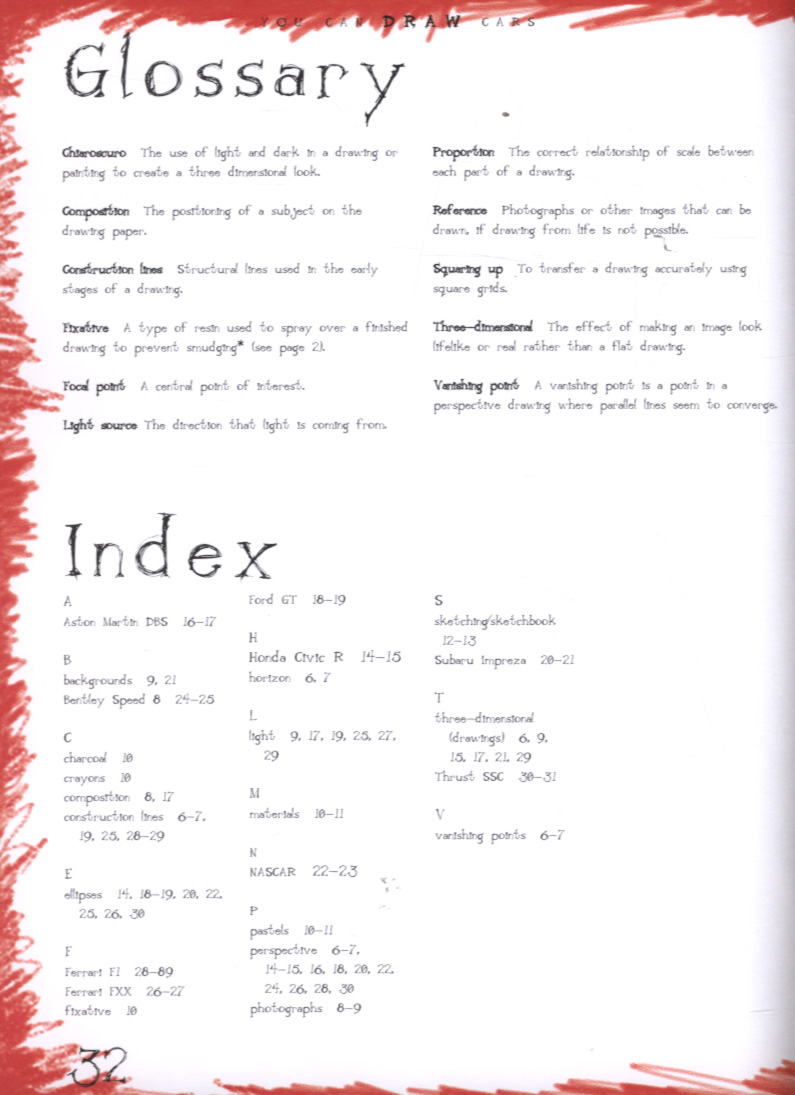 YOU CAN DRAW CARS
Glossary
Chiaroscuro The use of light and dark in a drawing or
painting to create a three dimensional look.
Composition The positioning of a subject on the
drawing paper.
Construction lines Structural lines used in the early
stages of a drawing.
Fixative A type of resin used to spray over a finished
drawing to prevent smudging* (see page 2).
Focal point A central point of interest.
Light source The direction that light is coming from.
Proportion The correct relationship of scale between
each part of a drawing.
Reference Photographs or other images that can be
drawn, if drawing from life is not possible.
Squaring up To transfer a drawing accurately using
square grids.
Three-dimensional The effect of making an image look
lifelike or real rather than a flat drawing.
Vanishing point A vanishing point is a point in a
perspective drawing where parallel lines seem to converge.
Index
A
Aston Martin DBS 16-17
B
backgrounds 9, 21
Bentley Speed 8 24-25
C
charcoal 10
crayons 10
composition 8, 17
construction lines 6-7,
19, 25, 28-29
E
ellipses 14, 18-19, 20, 22,
25, 26, 30
F
Ferrari F1 28-89
Ferrari FXX 26-27
fixative 10
Ford GT 18-19
H
Honda Civic R 14-15
horizon 6, 7
L
light 9, 17, 19, 25, 27,
29
M
materials 10-11
N
NASCAR 22-23
P
pastels 10-11
perspective 6-7,
14-15, 16, 18, 20, 22,
24, 26, 28, 30
photographs 8-9
S
sketching/sketchbook
12-13
Subaru Impreza 20-21
T
three-dimensional
(drawings) 6, 9,
15, 17, 21, 29
Thrust SSC 30-31
V
vanishing points 6-7
32